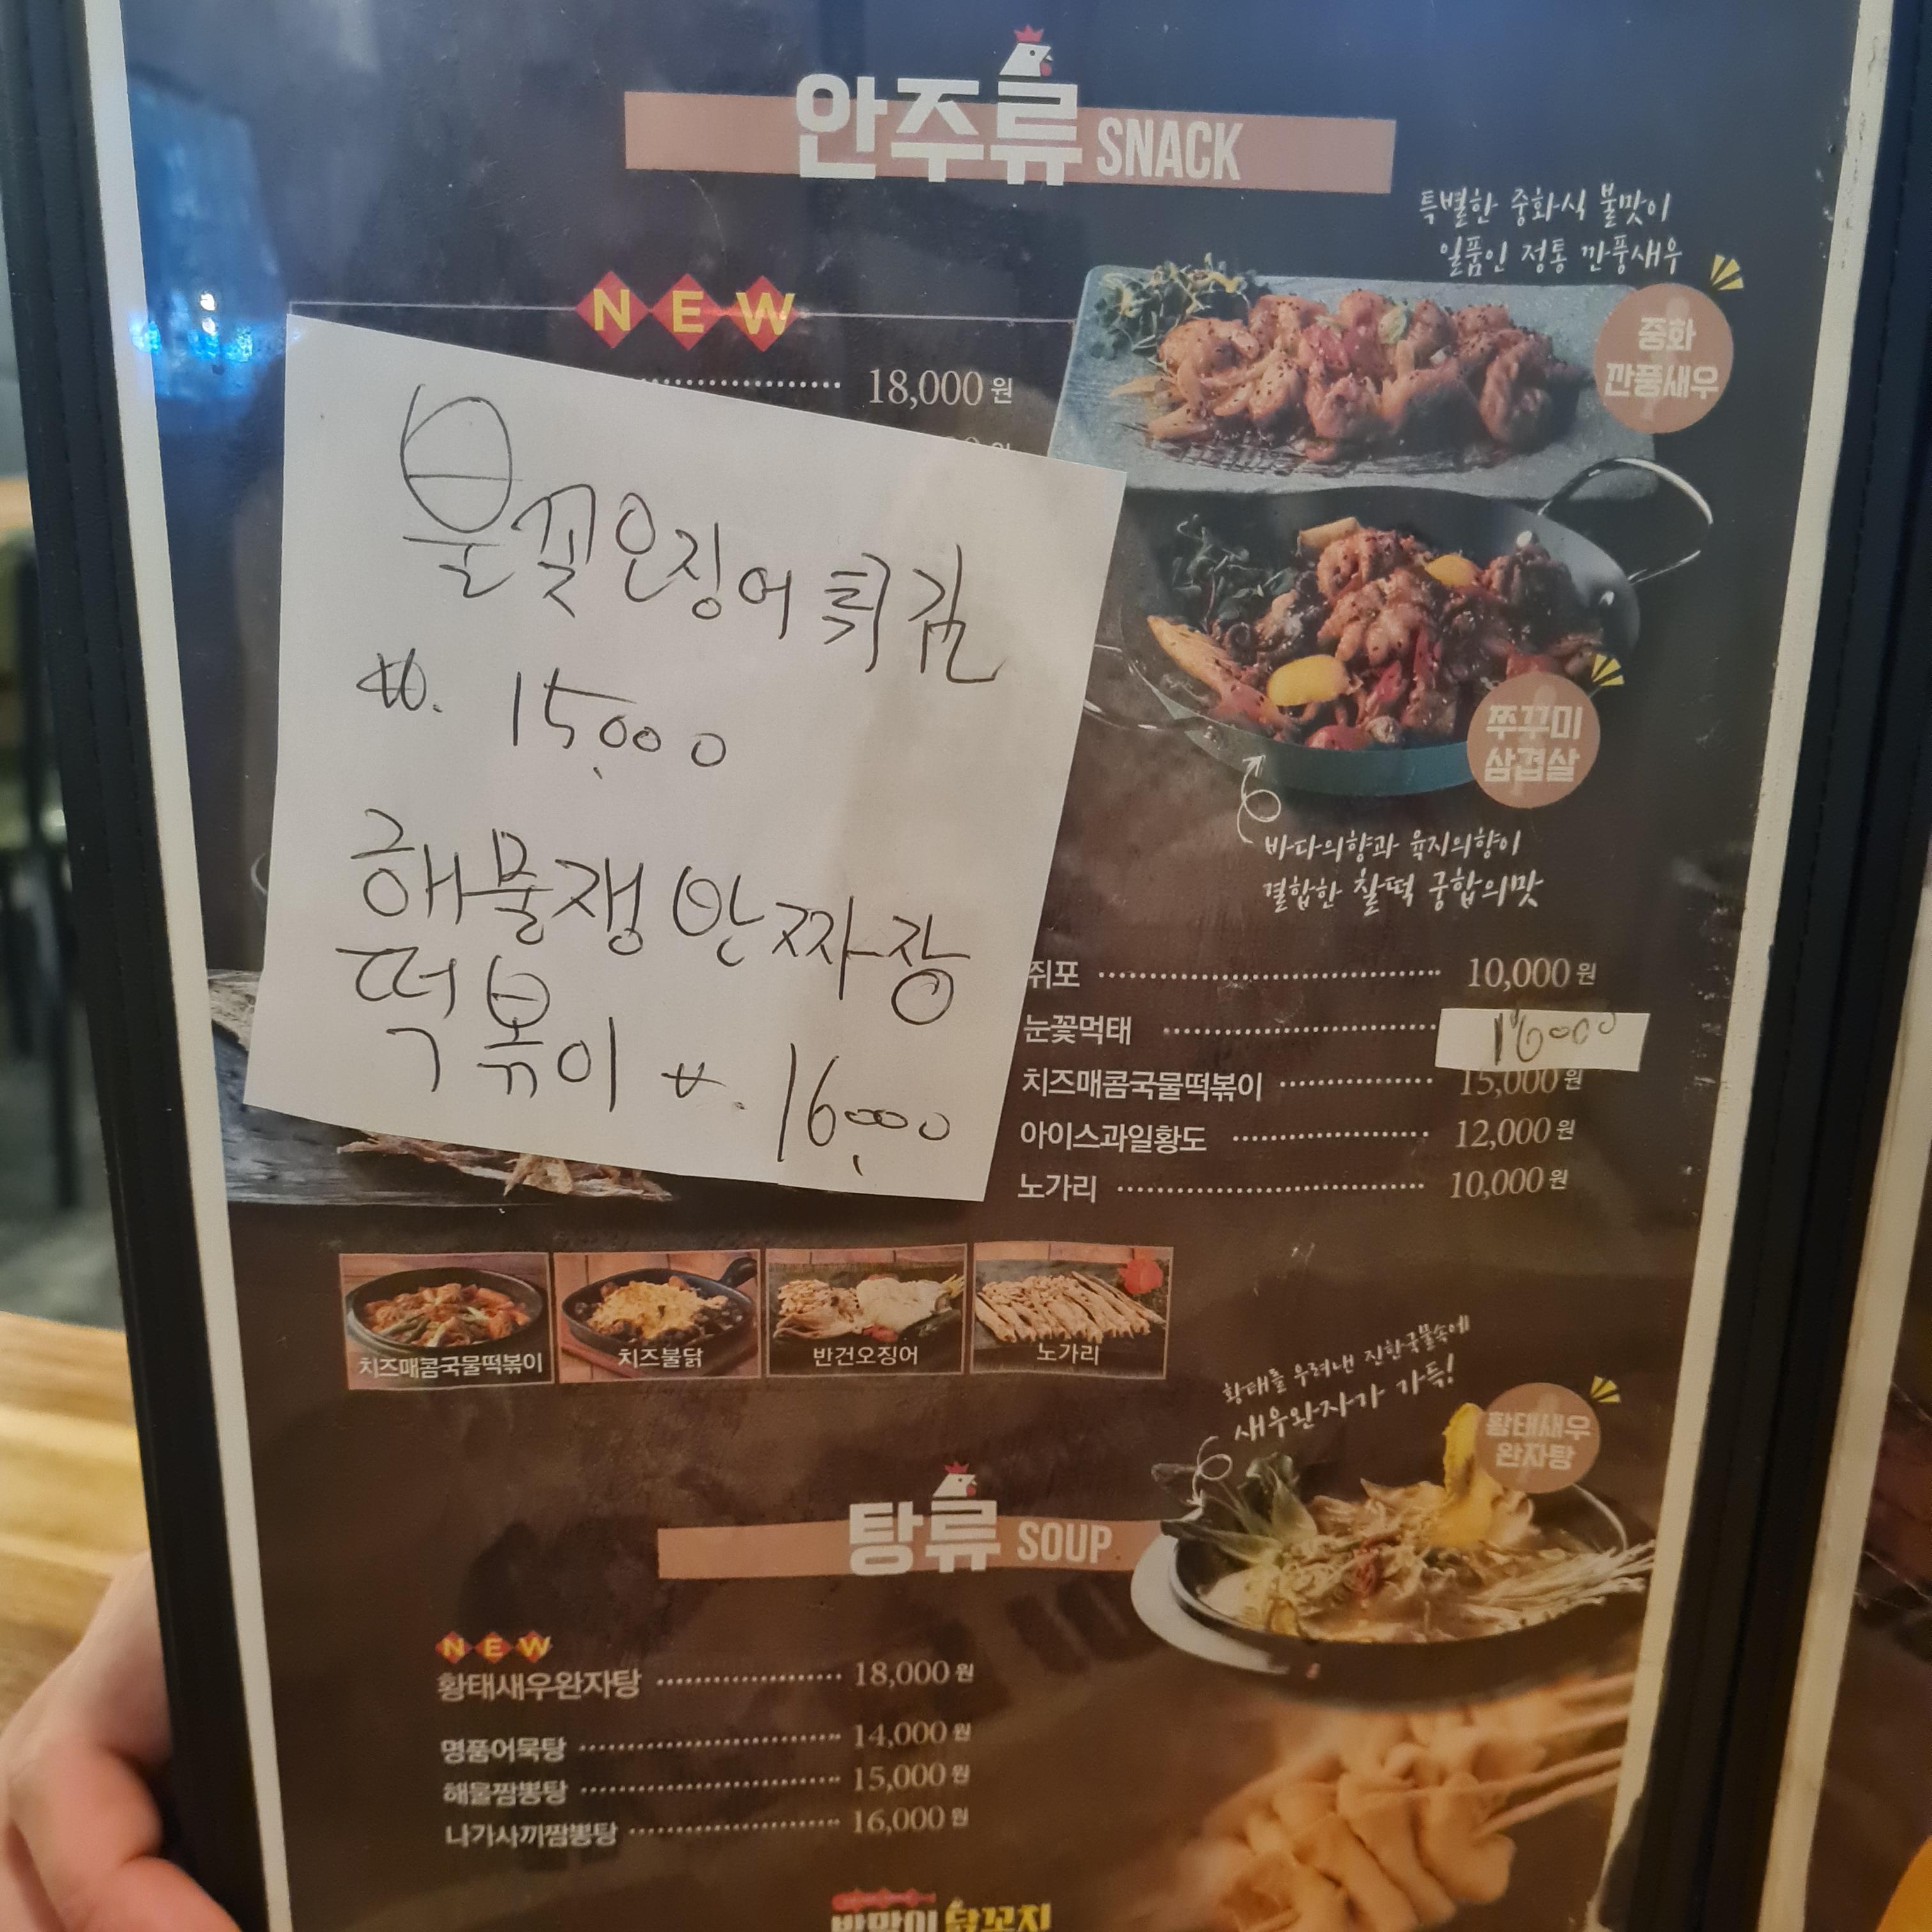 안주류 SNACK
특별한 중화식 불맛이
일품인 정통 깐풍새우
NEW
중화
깐풍새우
18,000원
불꽃오징어튀김
₩. 15,000
해물쟁반짜장
떡볶이 ₩. 16,000
쭈꾸미
삼겹살
바다의향과 육지의향이
결합한 찰떡 궁합의맛
쥐포 10,000원
눈꽃먹태 16000
치즈매콤국물떡볶이 15,000원
아이스과일황도 12,000원
노가리 10,000원
치즈매콤국물떡볶이
치즈불닭
반건오징어
노가리
황태를 우려낸 진한국물속에
새우완자가 가득!
황태새우
완자탕
탕류 SOUP
NEW
황태새우완자탕 18,000원
명품어묵탕 14,000원
해물짬뽕탕 15,000원
나가사끼짬뽕탕 16,000원
닭꼬치